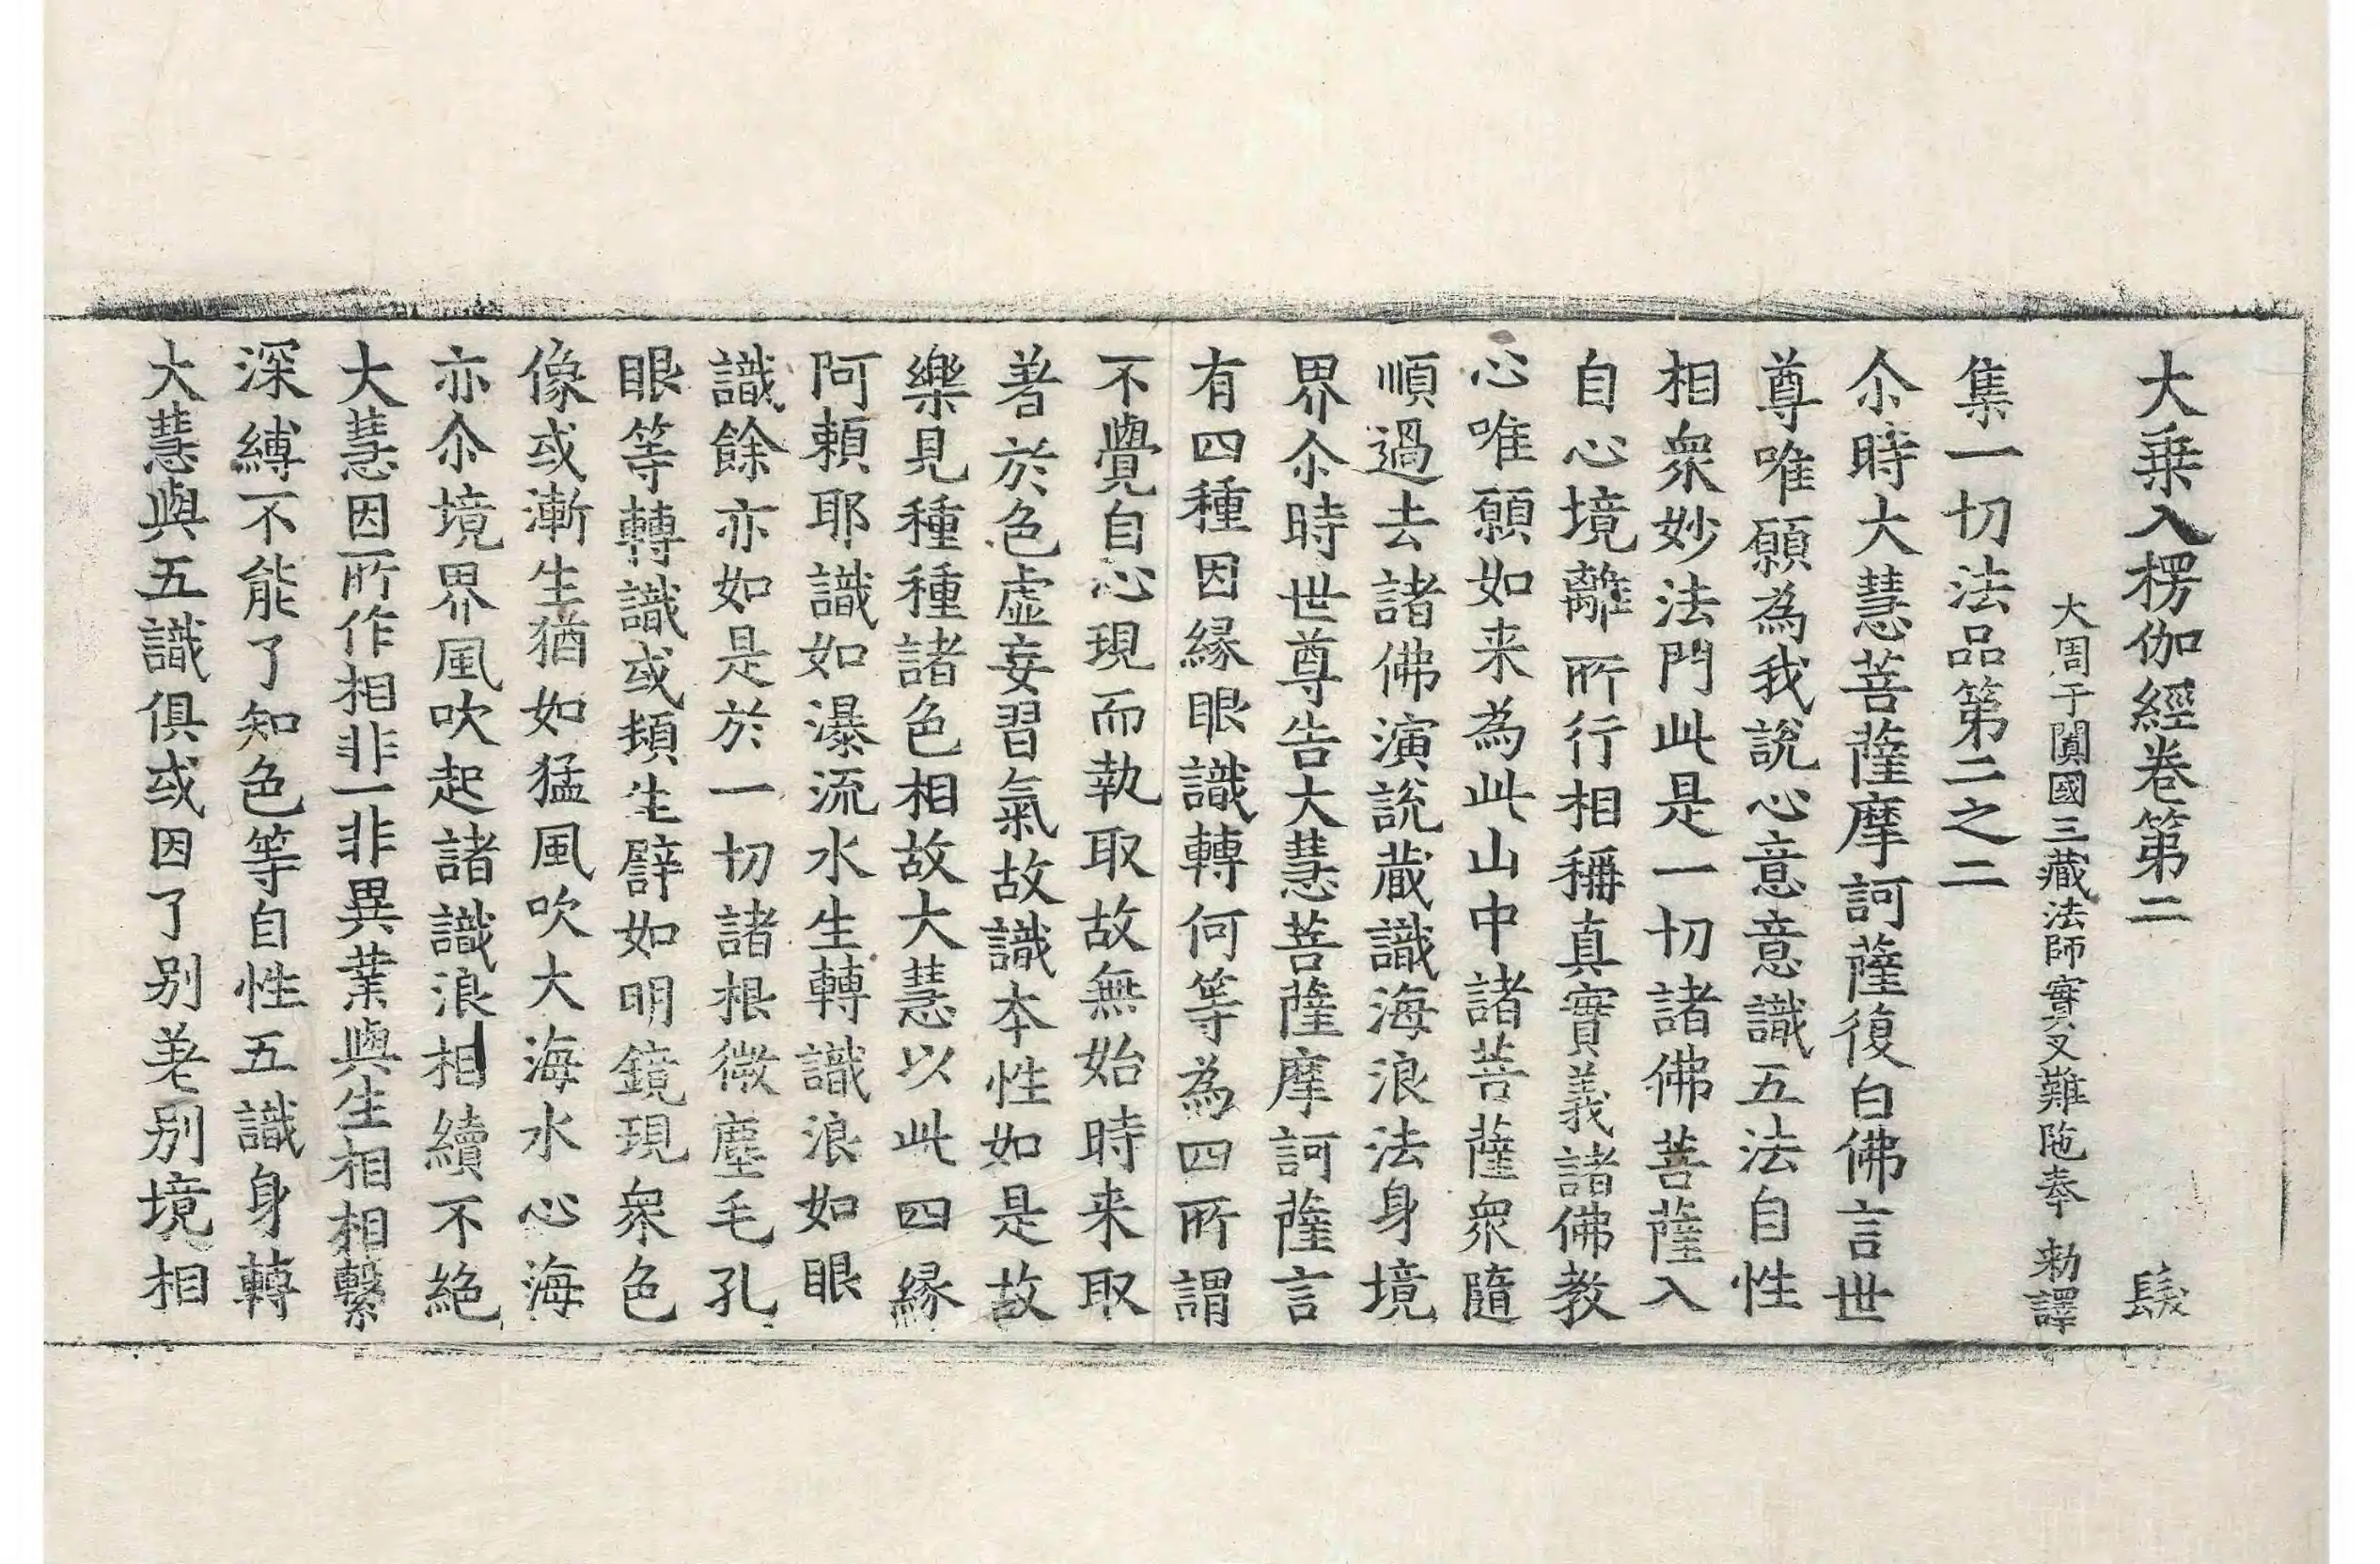 大乗入楞伽經卷第二 髮
大周于闐國三藏法師實叉難陁奉 勑譯
集一切法品第二之二
尒時大慧菩薩摩訶薩復白佛言世
尊唯願為我說心意意識五法自性
相衆妙法門此是一切諸佛菩薩入
自心境離所行相稱真實義諸佛教
心唯願如来為此山中諸菩薩衆隨
順過去諸佛演說蔵識海浪法身境
界尒時世尊告大慧菩薩摩訶薩言
有四種因縁眼識轉何等為四所謂
不覺自心現而執取故無始時来取
著於色虛妄習氣故識本性如是故
樂見種種諸色相故大慧以此四縁
阿頼耶識如瀑流水生轉識浪如眼
識餘亦如是於一切諸根微塵毛孔
眼等轉識或頓生譬如明鏡現衆色
像或漸生猶如猛風吹大海水心海
亦尒境界風吹起諸識浪相續不絶
大慧因所作相非一非異業與生相相繫
深縛不能了知色等自性五識身轉
大慧與五識俱或因了别差别境相